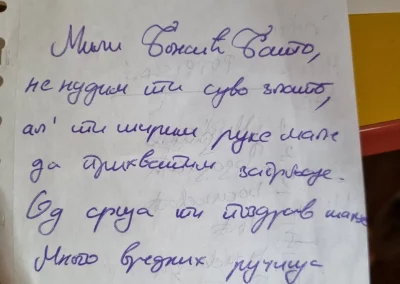 Мили Божић Бато,
не нудим ти суво злато,
ал' ти ширим руке мале
да прихватим
Од срца ти поздрав шаље
Много вредних ручица